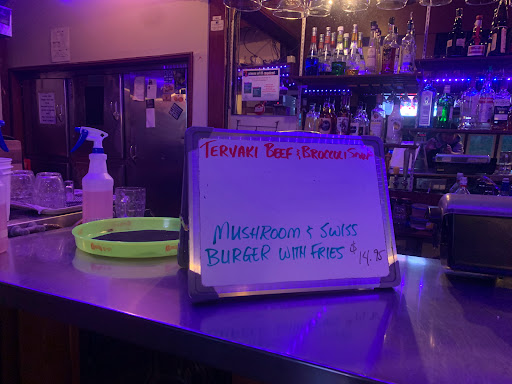 TERVAKI BEEF & BROCCOLI SOUP
MUSHROOM & SWISS
BURGER WITH FRIES $14.95